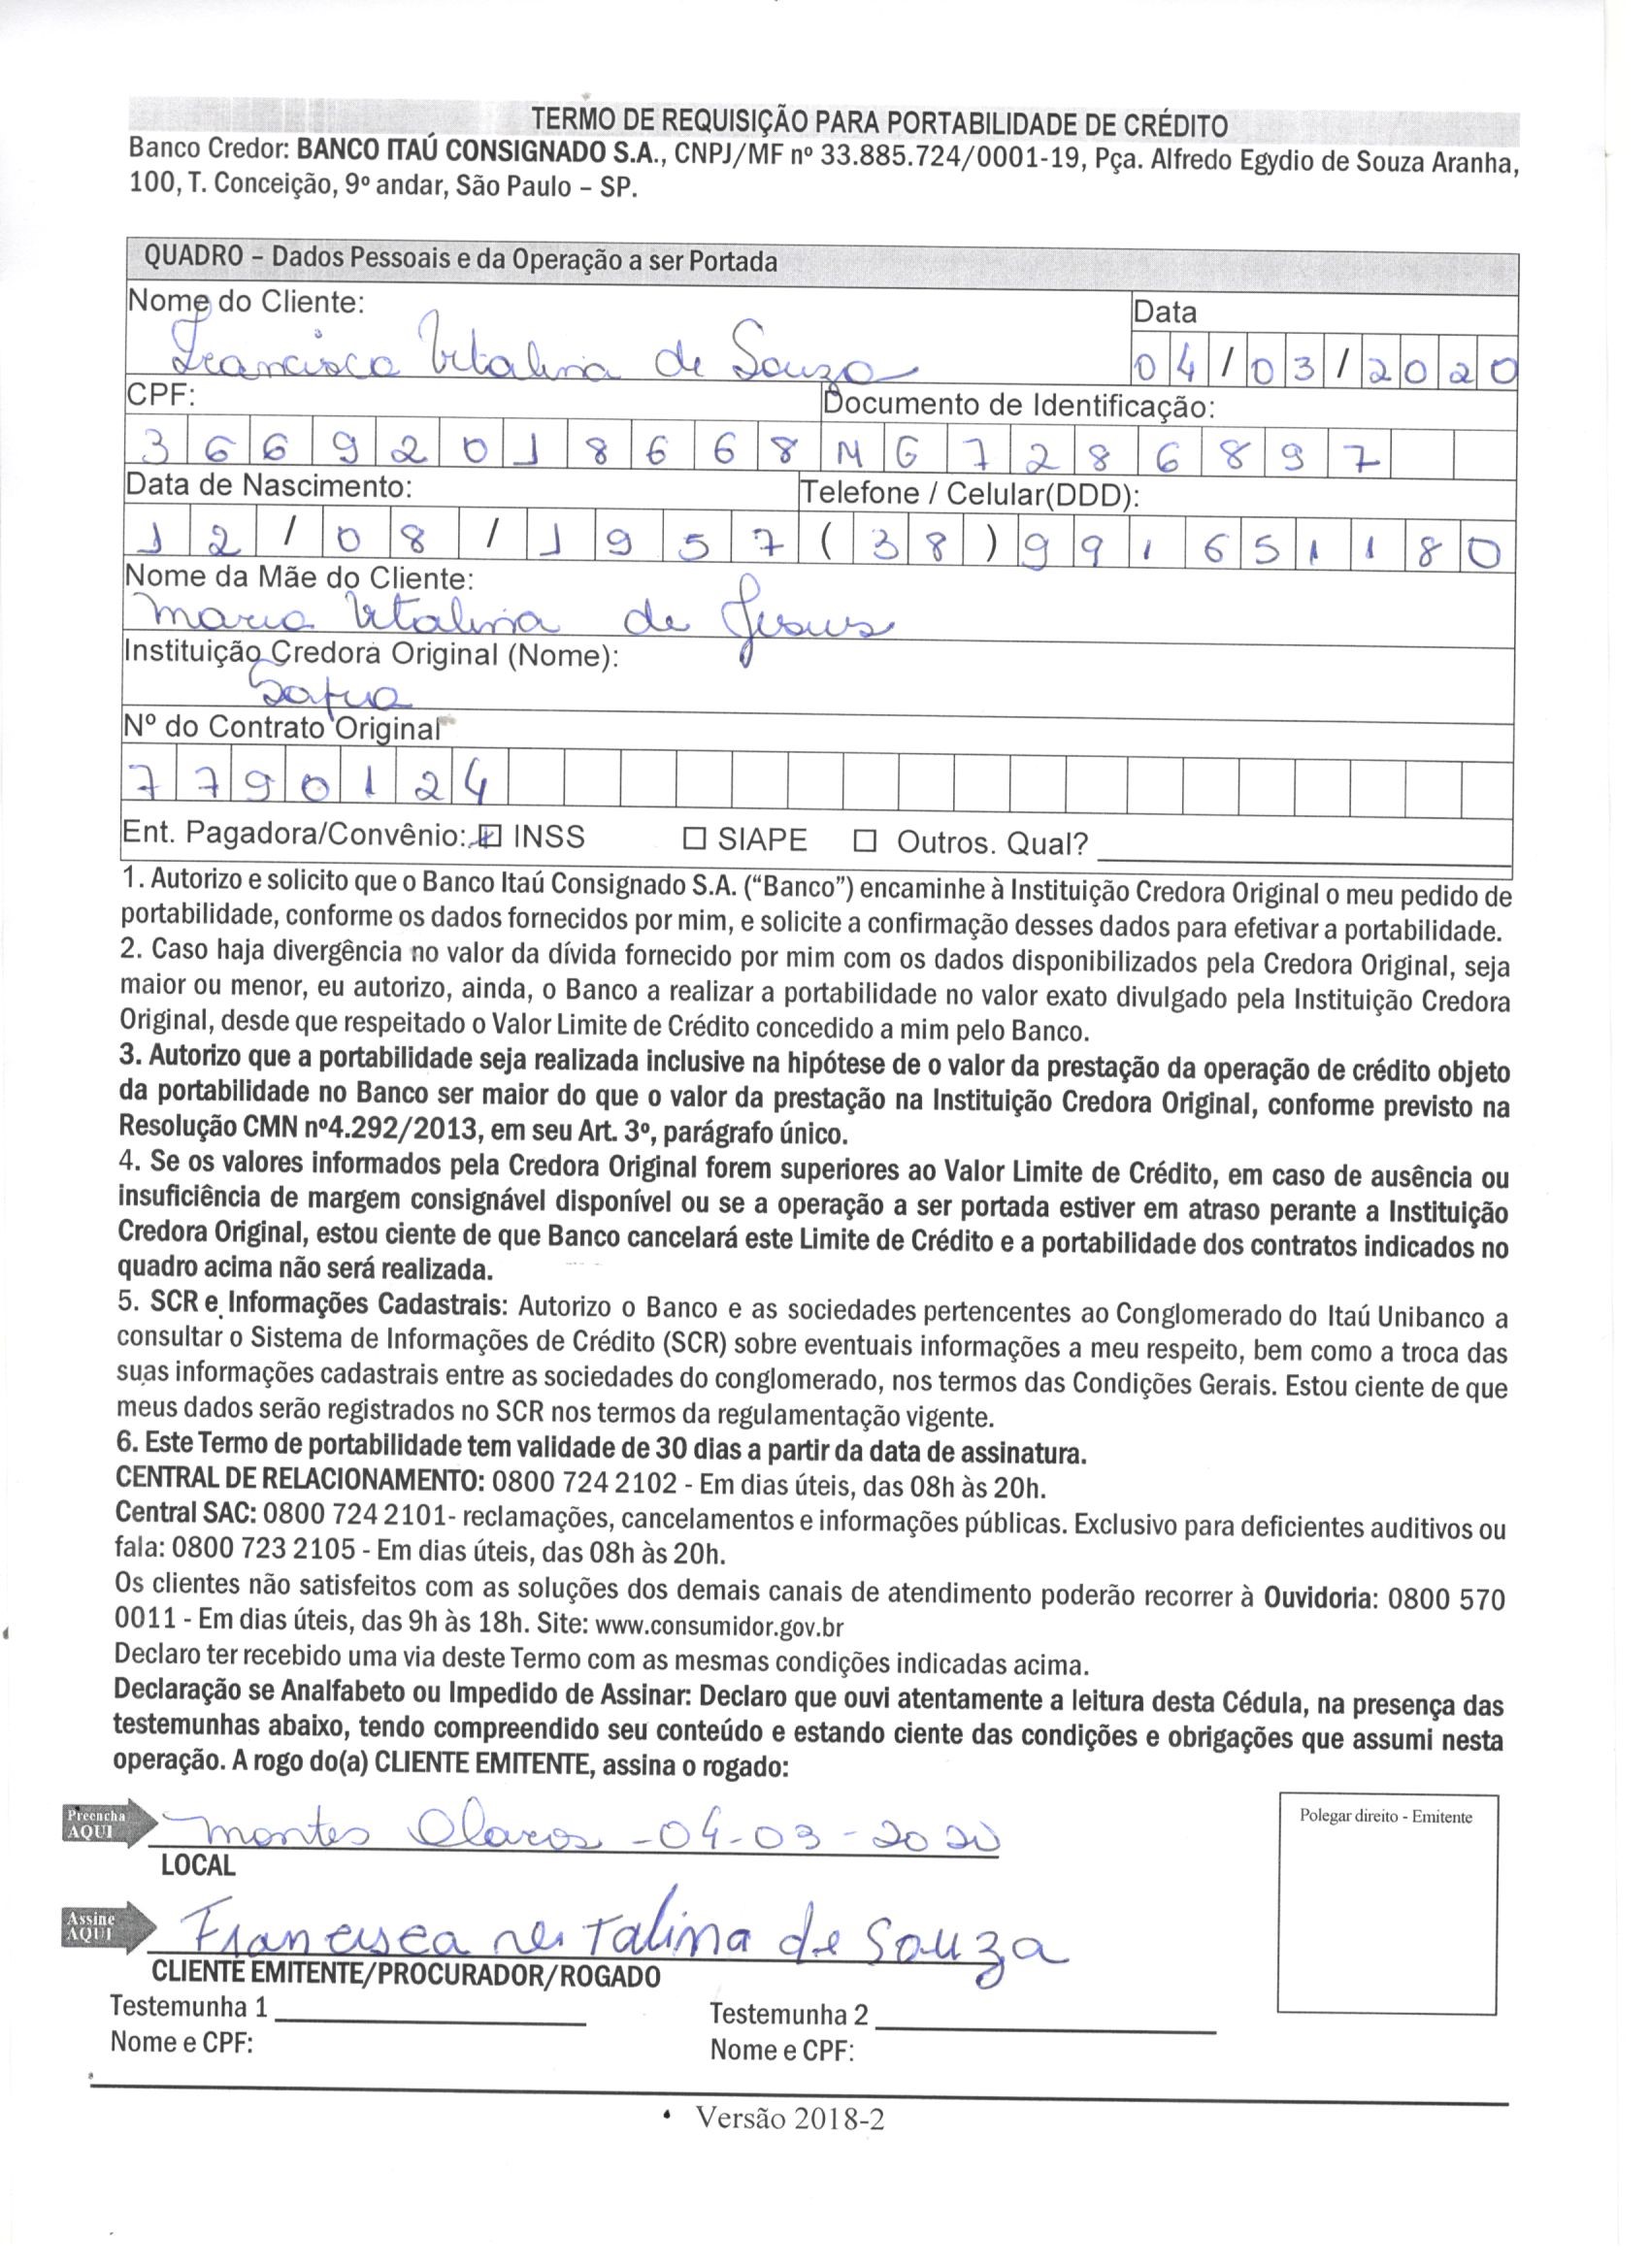 TERMO DE REQUISIÇÃO PARA PORTABILIDADE DE CRÉDITO
Banco Credor: BANCO ITAÚ CONSIGNADO S.A., CNPJ/MF nº 33.885.724/0001-19, Pça. Alfredo Egydio de Souza Aranha,
100, T. Conceição, 9º andar, São Paulo – SP.
QUADRO – Dados Pessoais e da Operação a ser Portada
Nome do Cliente: Data
Francisca Vitalina de Souza 04/03/2020
CPF: Documento de Identificação:
36692018668 MG7286897
Data de Nascimento: Telefone / Celular(DDD):
12/08/1957 (38)991651180
Nome da Mãe do Cliente:
Maria Vitalina de Jesus
Instituição Credora Original (Nome):
Safra
Nº do Contrato Original
7790124
Ent. Pagadora/Convênio: ☒ INSS ☐ SIAPE ☐ Outros. Qual?
1. Autorizo e solicito que o Banco Itaú Consignado S.A. (“Banco”) encaminhe à Instituição Credora Original o meu pedido de
portabilidade, conforme os dados fornecidos por mim, e solicite a confirmação desses dados para efetivar a portabilidade.
2. Caso haja divergência no valor da dívida fornecido por mim com os dados disponibilizados pela Credora Original, seja
maior ou menor, eu autorizo, ainda, o Banco a realizar a portabilidade no valor exato divulgado pela Instituição Credora
Original, desde que respeitado o Valor Limite de Crédito concedido a mim pelo Banco.
3. Autorizo que a portabilidade seja realizada inclusive na hipótese de o valor da prestação da operação de crédito objeto
da portabilidade no Banco ser maior do que o valor da prestação na Instituição Credora Original, conforme previsto na
Resolução CMN nº4.292/2013, em seu Art. 3º, parágrafo único.
4. Se os valores informados pela Credora Original forem superiores ao Valor Limite de Crédito, em caso de ausência ou
insuficiência de margem consignável disponível ou se a operação a ser portada estiver em atraso perante a Instituição
Credora Original, estou ciente de que Banco cancelará este Limite de Crédito e a portabilidade dos contratos indicados no
quadro acima não será realizada.
5. SCR e Informações Cadastrais: Autorizo o Banco e as sociedades pertencentes ao Conglomerado do Itaú Unibanco a
consultar o Sistema de Informações de Crédito (SCR) sobre eventuais informações a meu respeito, bem como a troca das
suas informações cadastrais entre as sociedades do conglomerado, nos termos das Condições Gerais. Estou ciente de que
meus dados serão registrados no SCR nos termos da regulamentação vigente.
6. Este Termo de portabilidade tem validade de 30 dias a partir da data de assinatura.
CENTRAL DE RELACIONAMENTO: 0800 724 2102 - Em dias úteis, das 08h às 20h.
Central SAC: 0800 724 2101- reclamações, cancelamentos e informações públicas. Exclusivo para deficientes auditivos ou
fala: 0800 723 2105 - Em dias úteis, das 08h às 20h.
Os clientes não satisfeitos com as soluções dos demais canais de atendimento poderão recorrer à Ouvidoria: 0800 570
0011 - Em dias úteis, das 9h às 18h. Site: www.consumidor.gov.br
Declaro ter recebido uma via deste Termo com as mesmas condições indicadas acima.
Declaração se Analfabeto ou Impedido de Assinar: Declaro que ouvi atentamente a leitura desta Cédula, na presença das
testemunhas abaixo, tendo compreendido seu conteúdo e estando ciente das condições e obrigações que assumi nesta
operação. A rogo do(a) CLIENTE EMITENTE, assina o rogado:
Preencha
AQUI
Montes Claros - 04-03-2020
LOCAL
Polegar direito - Emitente
Assine
AQUI
Francisca vitalina de Souza
CLIENTE EMITENTE/PROCURADOR/ROGADO
Testemunha 1 Testemunha 2
Nome e CPF: Nome e CPF:
• Versão 2018-2